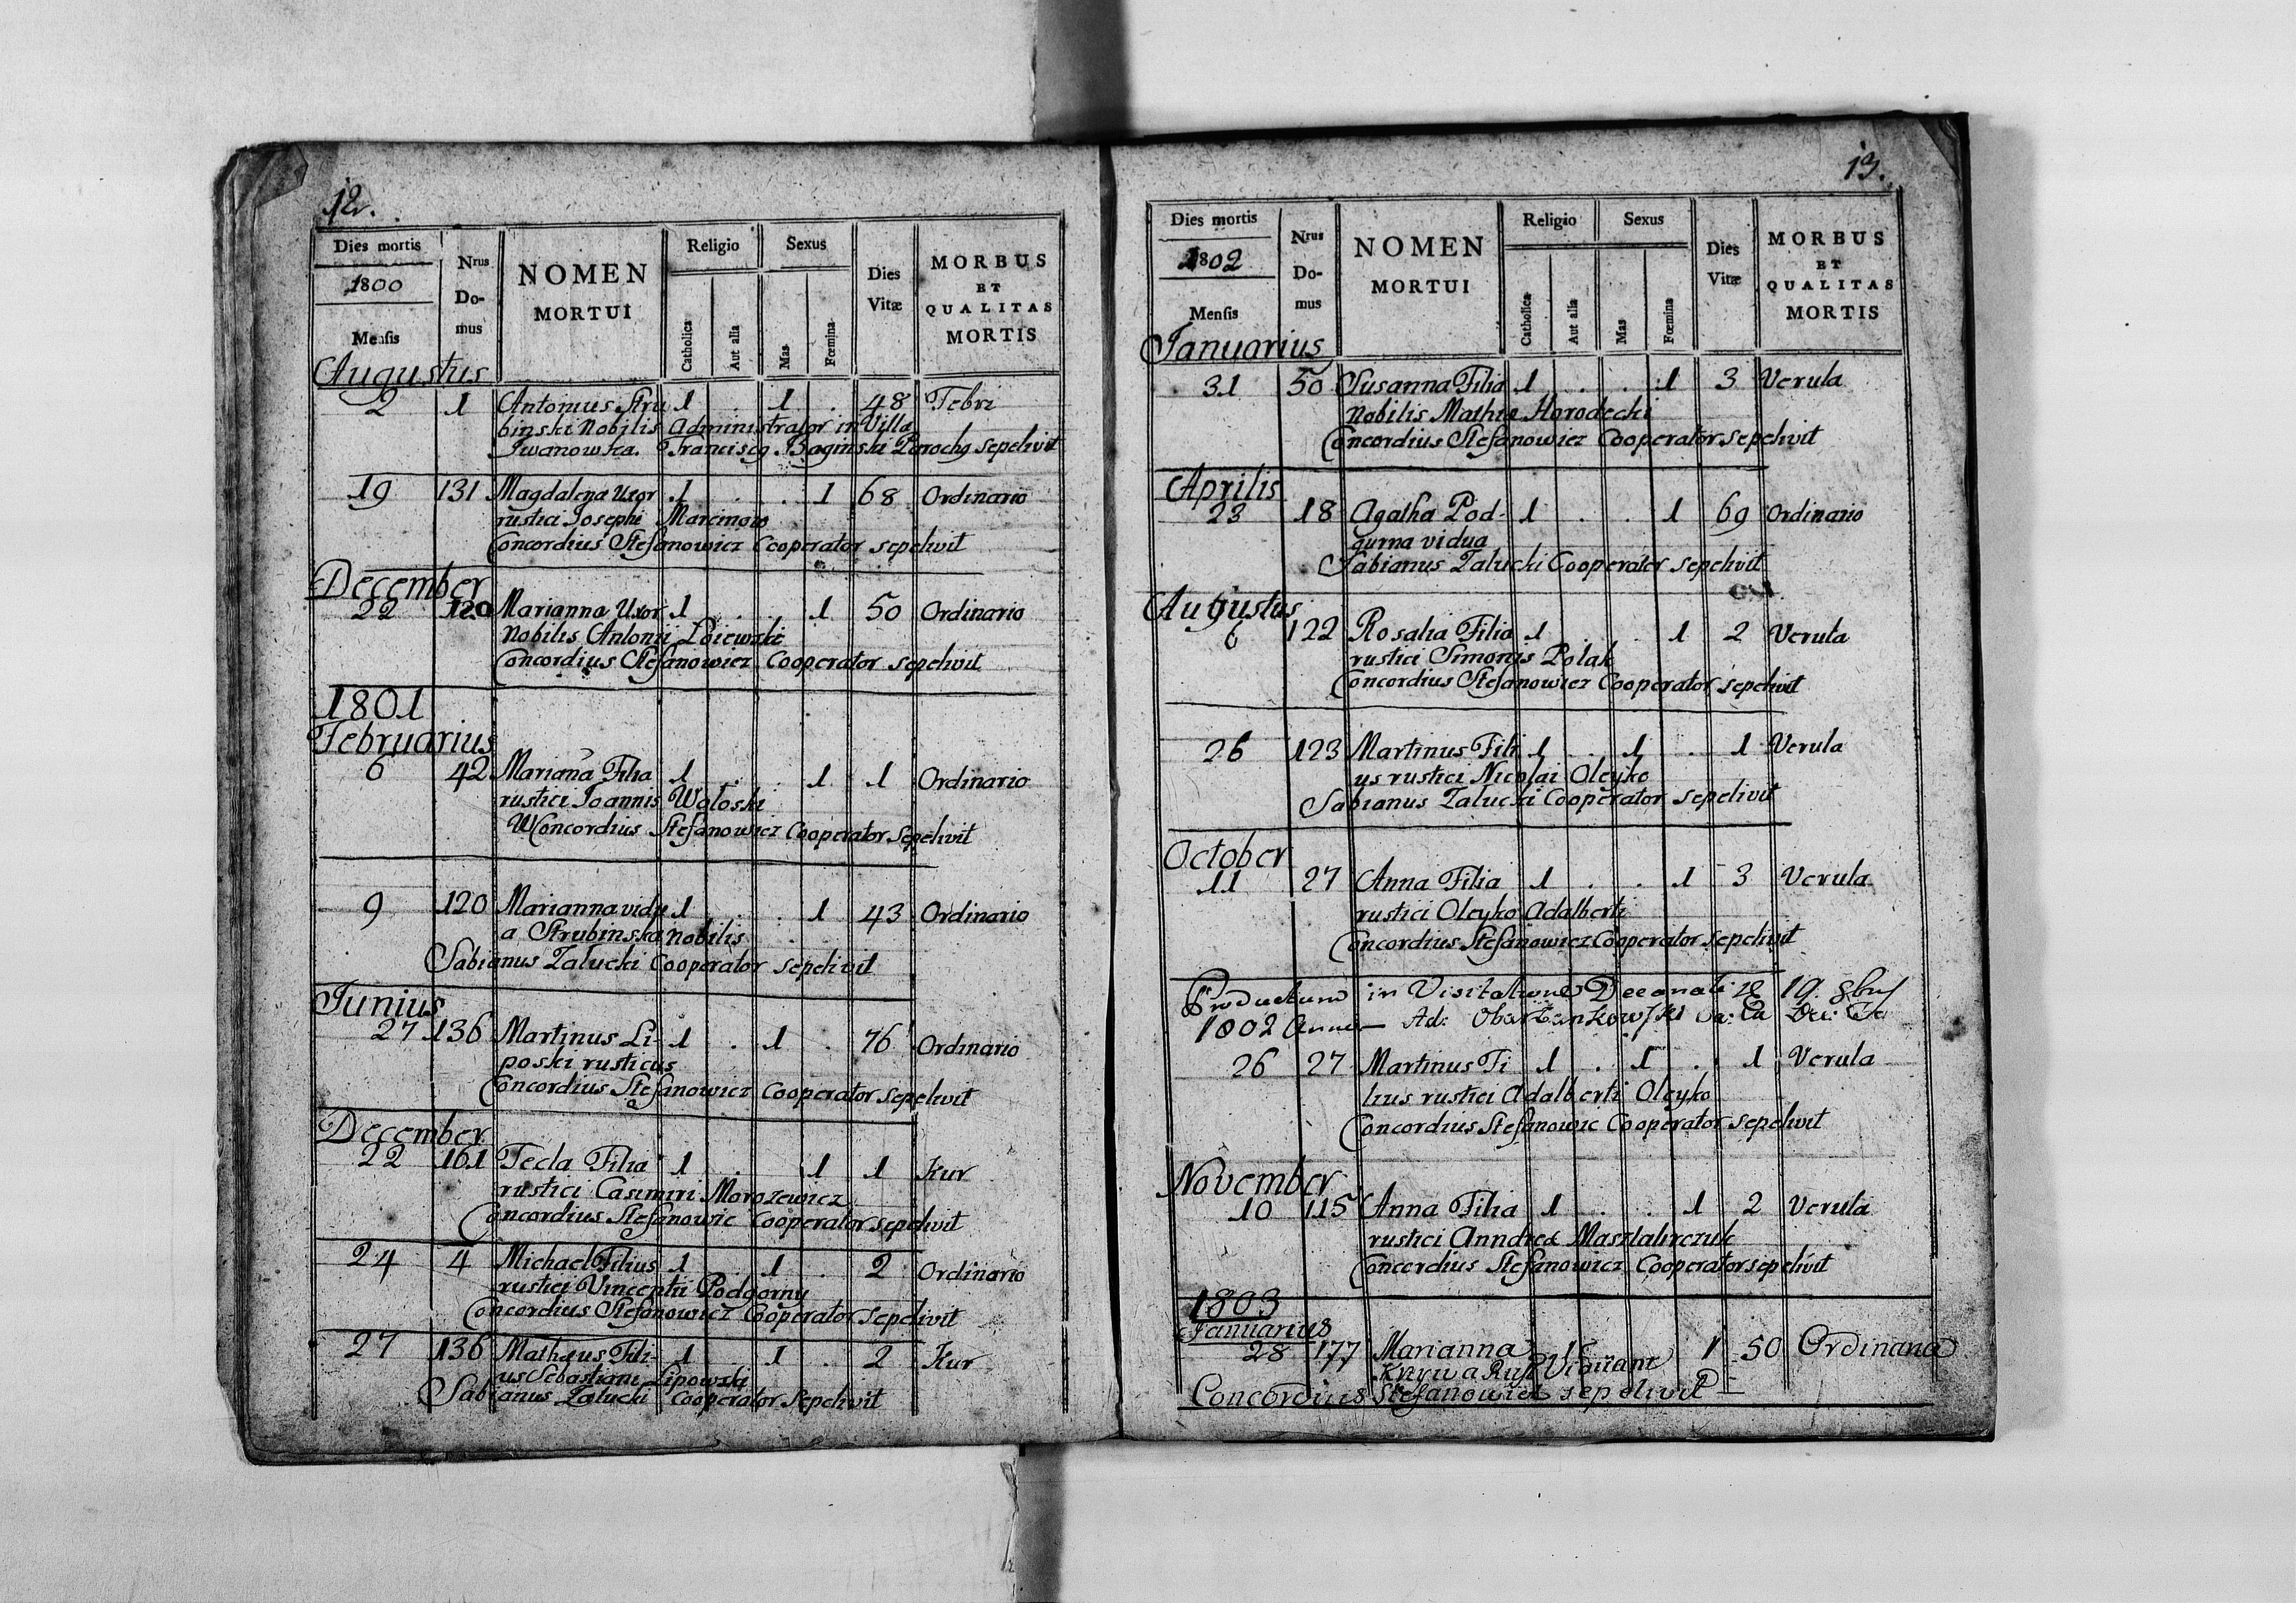 12.
Dies mortis
1800
Mensis
Nrus Do- mus
NOMEN
MORTUI
Religio
Catholica
Aut alia
Sexus
Mas
Fœmina
Dies Vitæ
MORBUS
ET
QUALITAS
MORTIS
Augustus
2 1 Antonius Stru 1 . 1 . 48 Febri
binski Nobilis Administrator in Villa
Iwanowka. Franciscq Baginski Parochq sepelivit
19 131 Magdalena Uxor 1 . . 1 68 Ordinario
rustici Josephi Marcinow
Concordius Stefanowicz Cooperator sepelivit
December
22 120 Marianna Uxor 1 . . 1 50 Ordinario
Nobilis Antonii Loiewski
Concordius Stefanowicz Cooperator sepelivit
1801
Februarius
6 42 Mariana Filia 1 . . 1 1 Ordinario
rustici Joannis Wołoski
Concordius Stefanowicz Cooperator sepelivit
9 120 Marianna vidu 1 . . 1 43 Ordinario
a Strubinska nobilis
Sabianus Zalucki Cooperator sepelivit
Junius
27 136 Martinus Li- 1 . 1 . 76 Ordinario
poski rusticus
Concordius Stefanowicz Cooperator sepelivit
December
22 161 Tecla Filia 1 . . 1 1 Kur
rustici Casimiri Morozewicz
Concordius Stefanowic Cooperator sepelivit
24 4 Michael Filius 1 . 1 . 2 Ordinario
rustici Vincentii Podgorny
Concordius Stefanowicz Cooperator sepelivit
27 136 Mathæus Fili- 1 . 1 . 2 Kur
us Sebastiani Lipowski
Sabianus Zalucki Cooperator sepelivit
13.
Dies mortis
1802
Mensis
Nrus Do- mus
NOMEN
MORTUI
Religio
Catholica
Aut alia
Sexus
Mas
Fœmina
Dies Vitæ
MORBUS
ET
QUALITAS
MORTIS
Januarius
31 50 Susanna Filia 1 . . 1 3 Verula
Nobilis Mathiæ Horodecki
Concordius Stefanowicz Cooperator sepelivit
Aprilis
23 18 Agatha Pod- 1 . . 1 69 Ordinario
gurna vidua
Sabianus Zalucki Cooperator sepelivit
Augustus
6 122 Rosalia Filia 1 . . 1 2 Verula
rustici Simonis Polak
Concordius Stefanowicz Cooperator sepelivit
26 123 Martinus Fili 1 . 1 . 1 Verula
us rustici Nicolai Oleyko
Sabianus Zalucki Cooperator sepelivit
October
11 27 Anna Filia 1 . . 1 3 Verula
rustici Oleyko Adalberti
Concordius Stefanowicz Cooperator sepelivit
Productum in Visitatione Decanali 19. 8bris
1802 Anni Ad:
26 27 Martinus Fi 1 . 1 . 1 Verula
lius rustici Adalberti Oleyko
Concordius Stefanowic Cooperator sepelivit
November
10 115 Anna Filia 1 . . 1 2 Verula
rustici Anndreæ Masztalirczuk
Concordius Stefanowicz Cooperator sepelivit
1803
Januarius
28 177 Marianna 1 50 Ordinaria
Concordius Stefanowicz sepelivit